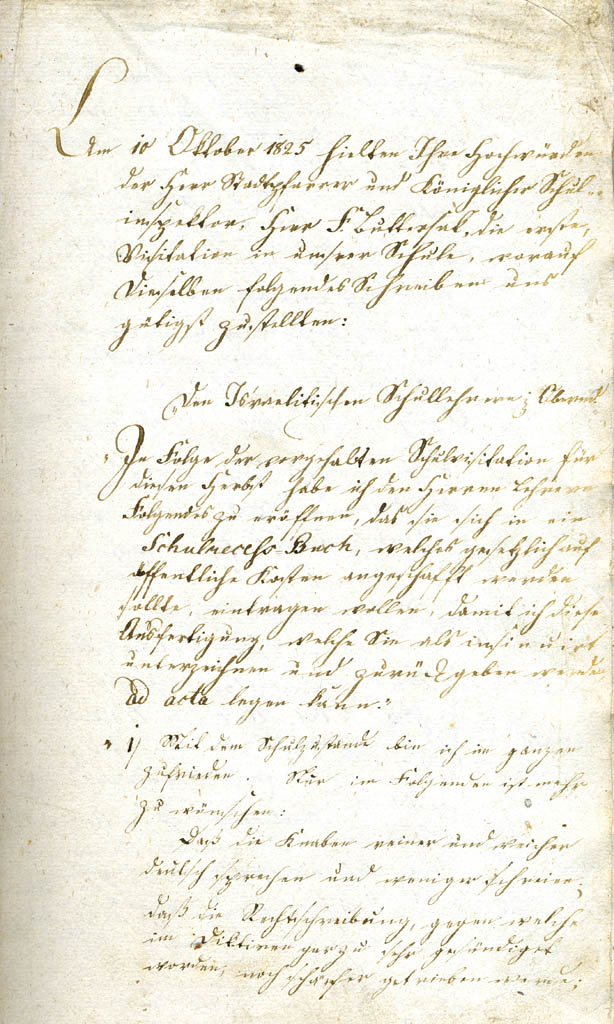 Am 10 Oktober 1825 hielten Ihre Hochwürden
der Herr Stadtpfarrer und Königlicher Schul-
inspektor, Herr F. Buttersak, die erste
Visitation in unsrer Schule, worauf
Dieselben folgendes Schreiben uns
gütigst zustellten:
„Den Israelitischen Schullehrern
„In Folge der vorgehalten Schulvisitation für
diesen Herbst habe ich den Herren Lehrern
Folgendes zu eröffnen, das sie sich in ein
Schulrecess Buch, welches gesetzlich auf
öffentliche Kosten angeschafft werden
sollte, eintragen wollen, damit ich diese
Ausfertigung, welche Sie als insinuirt
unterzeichnen und zurückgeben werden
ad acta legen kann."
„ 1) Mit dem Schulzustande bin ich im ganzen
zufrieden. Nur im Folgenden ist mehr
zu wünschen:
Daß die Knaben reiner und reicher
deutsch sprechen und weniger schreien;
daß die Rechtschreibung, gegen welche
im Diktiren gar zu sehr gesündiget
worden, noch schärfer getrieben werde;